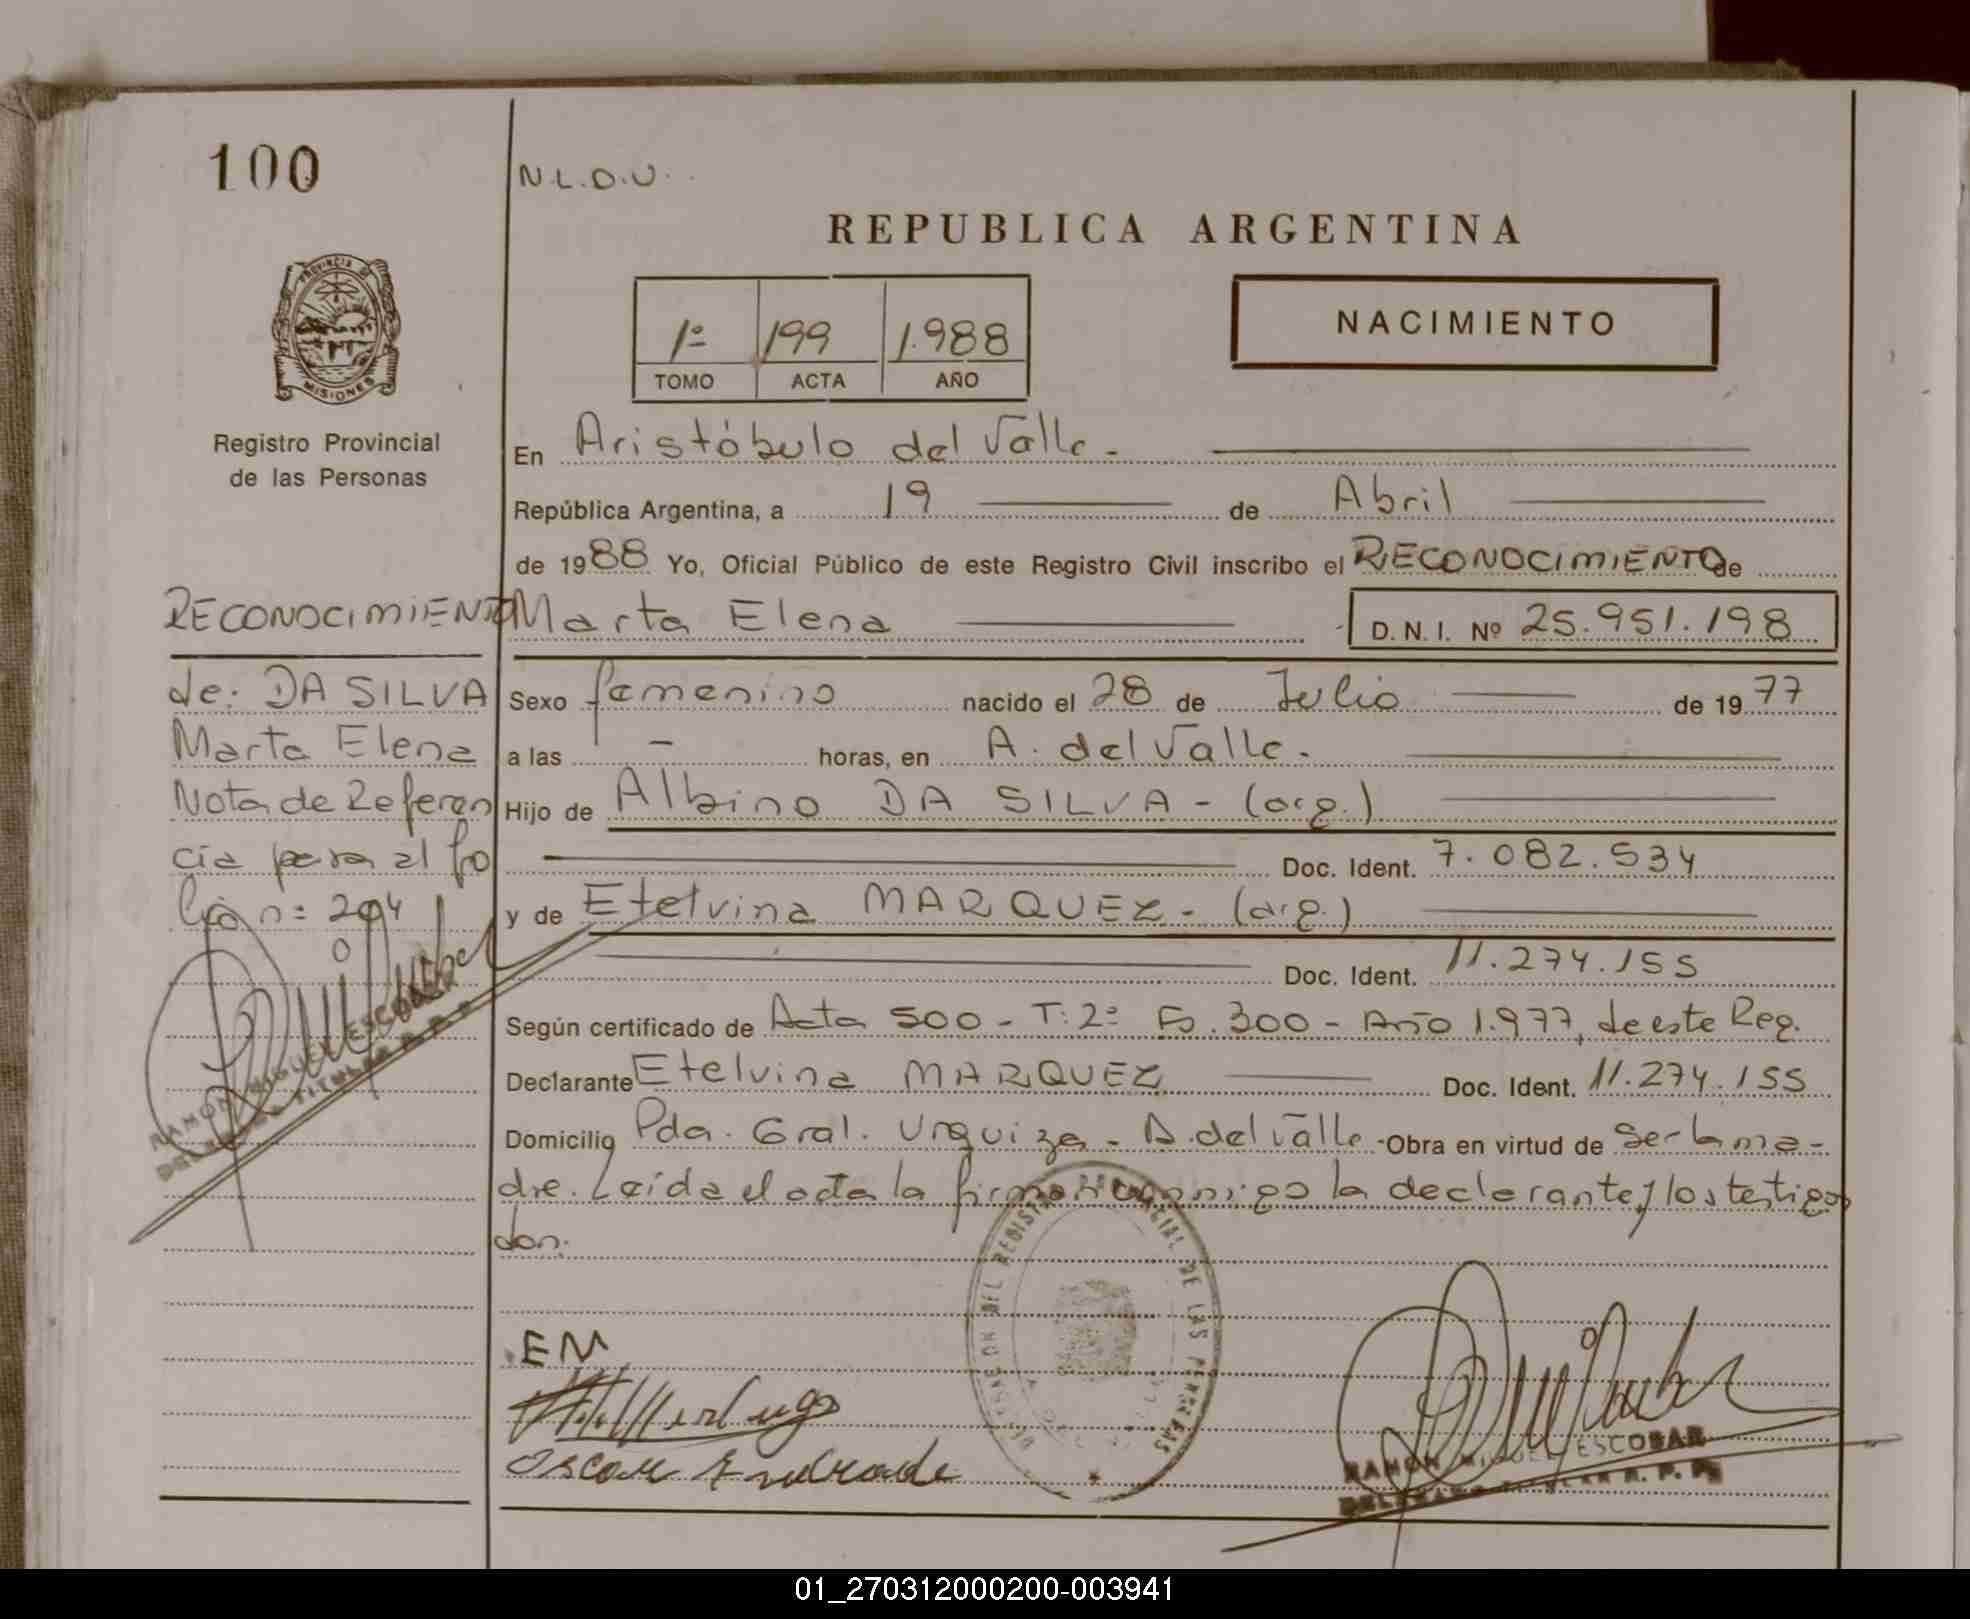 100
N.L.D.U.
REPUBLICA ARGENTINA
PROVINCIA DE
MISIONES
1º 199 1.988
TOMO ACTA AÑO
NACIMIENTO
Registro Provincial
de las Personas
En Aristóbulo del Valle.
República Argentina, a 19 de Abril
de 1988 Yo, Oficial Público de este Registro Civil inscribo el RECONOCIMIENTO de
Marta Elena D. N. I. Nº 25.951.198
Sexo femenino nacido el 28 de Julio de 1977
a las - horas, en A. del Valle.
Hijo de Albino DA SILVA - (arg.)
Doc. Ident. 7.082.534
y de Etelvina MARQUEZ - (arg.)
Doc. Ident. 11.274.155
Según certificado de Acta 500 - T: 2º Fo. 300 - Año 1.977, de este Reg.
Declarante Etelvina MARQUEZ Doc. Ident. 11.274.155
Domicilio Pda. Gral. Urquiza - A. del Valle - Obra en virtud de ser la ma-
dre. Leída el acta la firman conmigo la declarante y los testigos
don:
RECONOCIMIENTO
de: DA SILVA
Marta Elena
Nota de Referen
cia para el fo
lio n: 204
RAMON MIGUEL ESCOBAR
DELEGADO TITULAR R. P. P.
E M
Oscar Andrade
DEL REGISTRO PROVINCIAL DE LAS PERSONAS
RAMON MIGUEL ESCOBAR
DELEGADO TITULAR R. P. P.
01_270312000200-003941